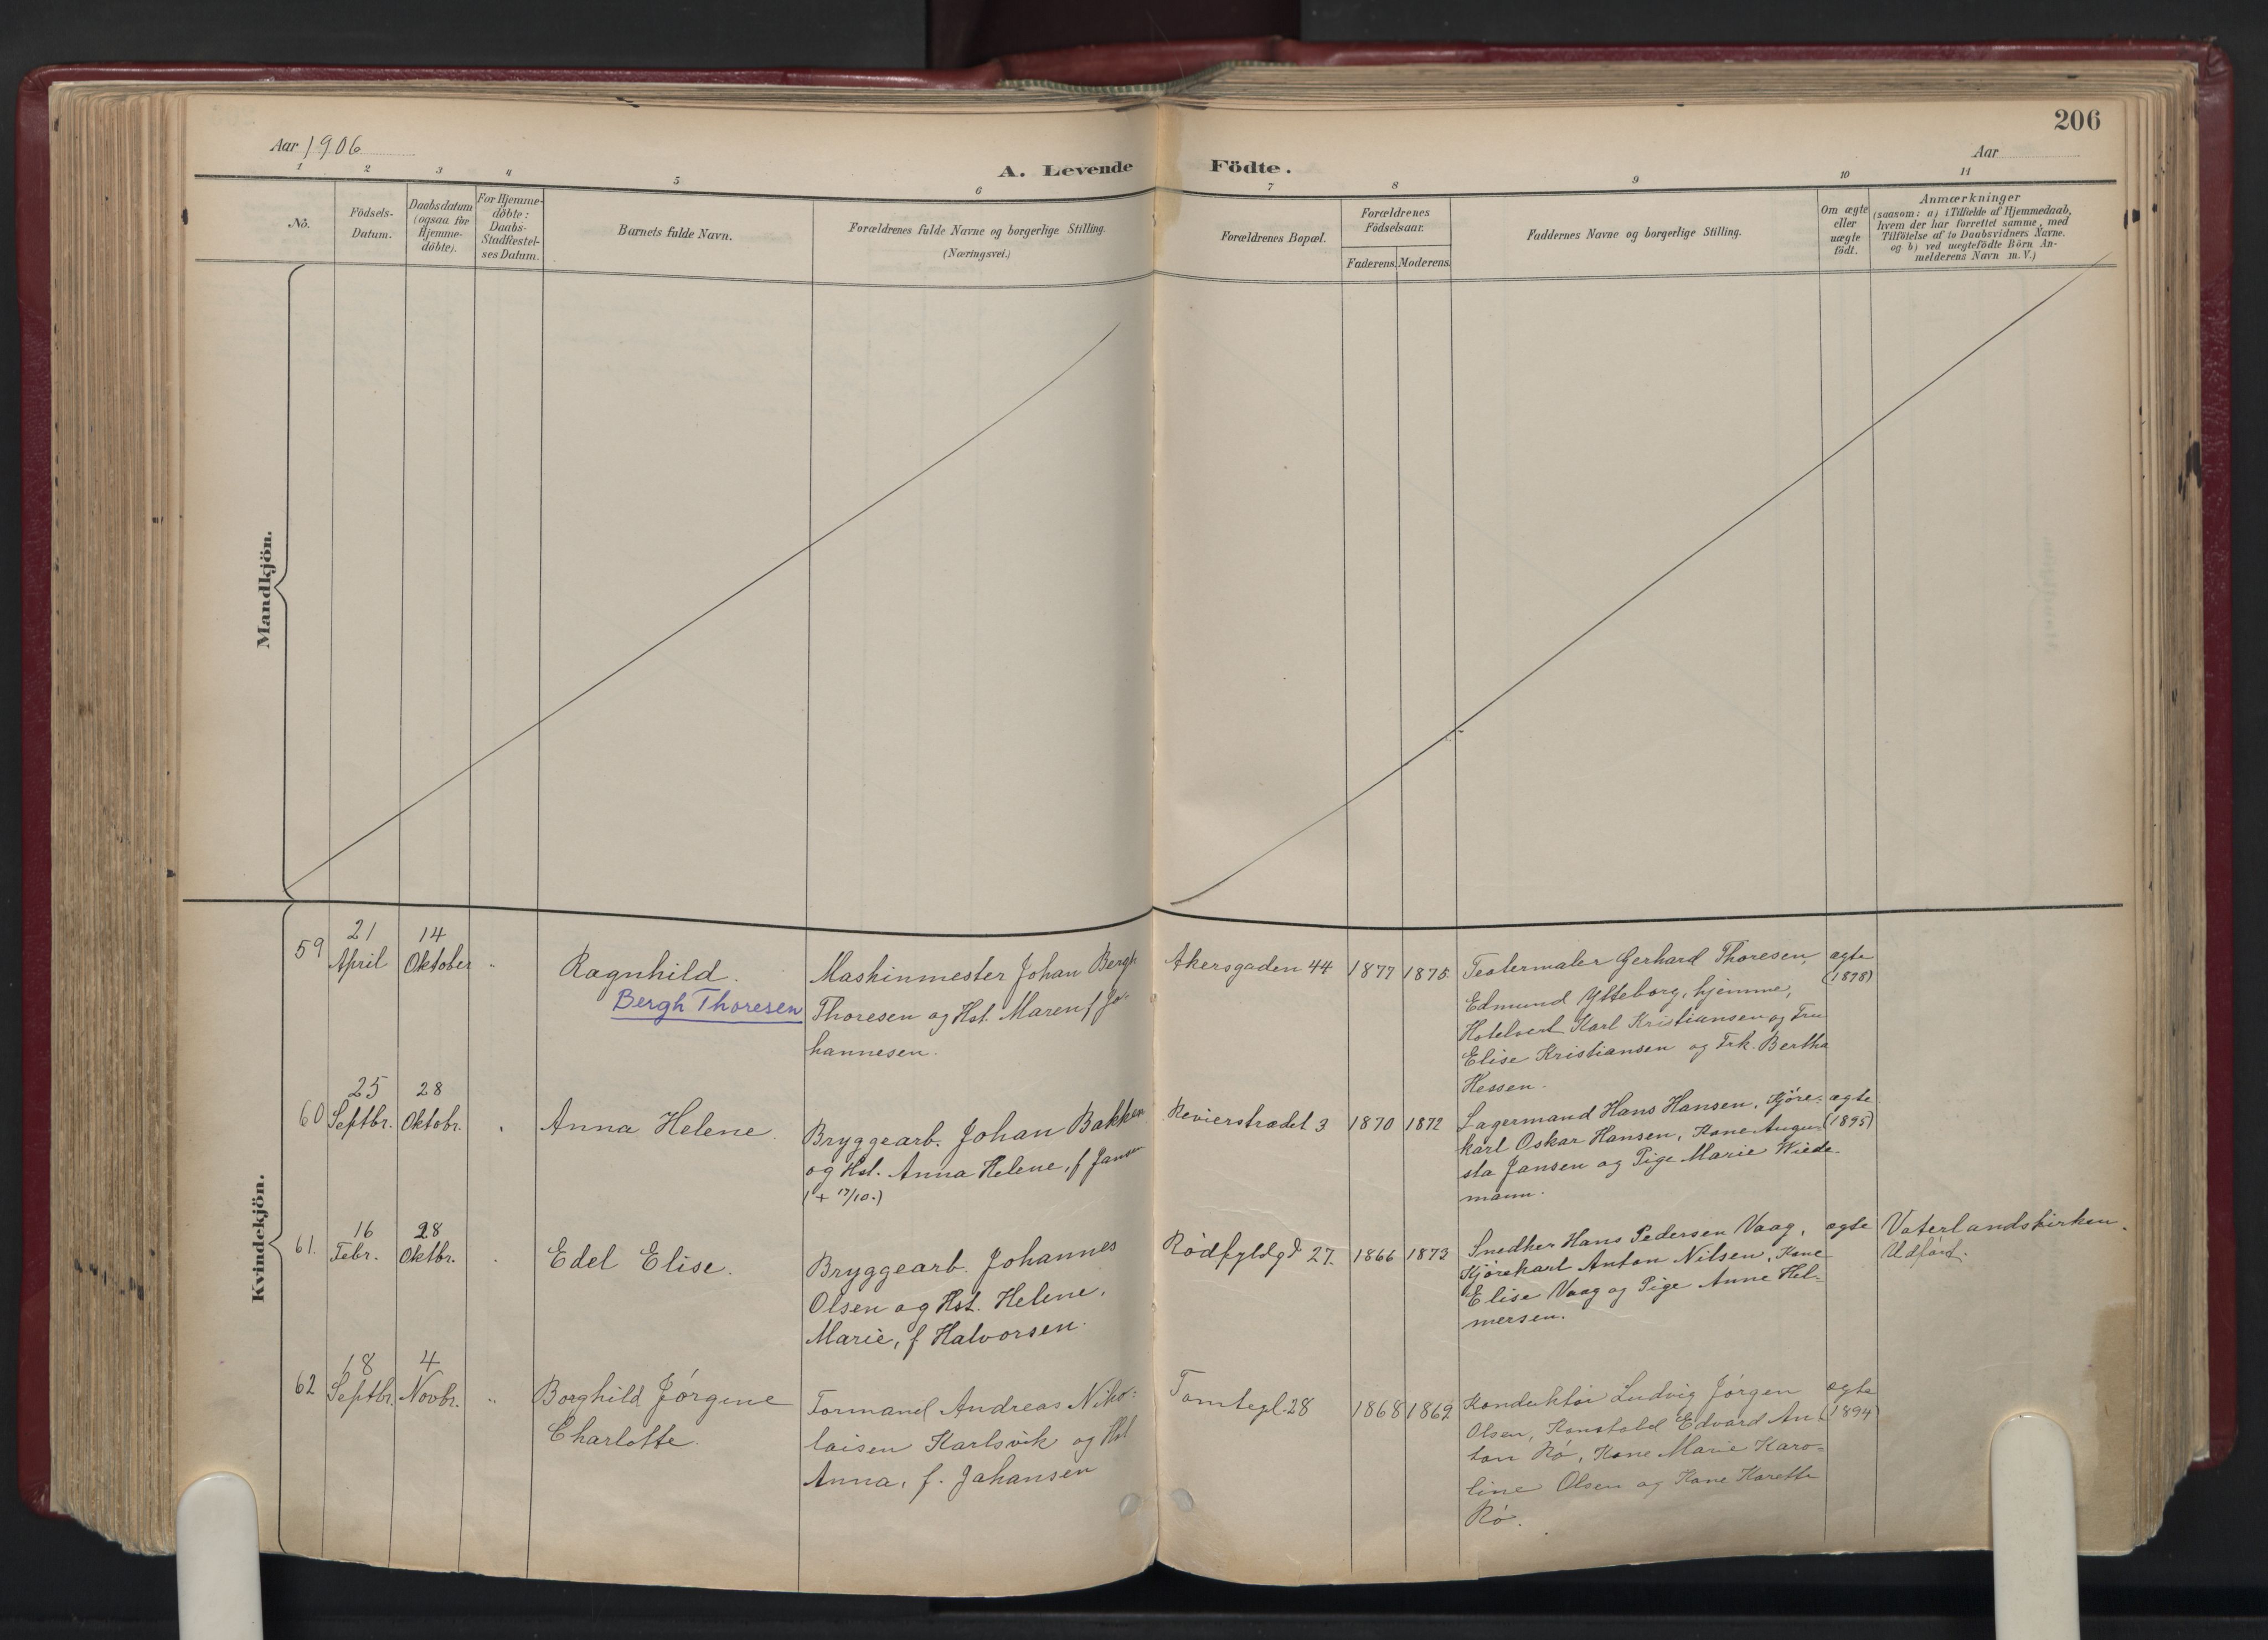 206
Aar 1906
Aar
A. Levende Födte.
1 2 3 4 5 6 7 8 9 10 11
No.
Födsels-
Datum.
Daabsdatum
(ogsaa for
Hjemme-
döbte).
For Hjemme-
döbte:
Daabs-
Stadfæstel-
ses Datum.
Barnets fulde Navn.
Forældrenes fulde Navne og borgerlige Stilling.
(Næringsvei.)
Forældrenes Bopæl.
Forældrenes
Födselsaar.
Faderens. Moderens.
Faddernes Navne og borgerlige Stilling.
Om ægte
eller
uægte
födt.
Anmærkninger
(saasom: a) i Tilfælde af Hjemmedaab,
hvem der har forrettet samme, med
Tilföielse af to Daabsvidners Navne.
og b) ved uægtefödte Börn An-
melderens Navn m. V.)
Mandkjön.
Kvindekjön.
59
21
April
14
Oktober
"
Ragnhild.
Bergh Thoresen
Maskinmester Johan Bergh
Thoresen og Hst. Maren f Jo-
hannesen.
Akersgaden 44
1877
1875
Teatermaler Gerhard Thoresen,
Edmund Ytteborg, hjemme,
Hotelvert Karl Kristiansen og Fru
Elise Kristiansen og Frk. Bertha
Hessen.
ægte
(1898)
60
25
Septbr.
28
Oktobr.
"
Anna Helene.
Bryggearb. Johan Bakken
og Hst. Anna Helene, f Jansen
(+ 17/10.)
Revierstrædet 3
1870
1872
Lagermand Hans Hansen, Kjøre-
karl Oskar Hansen, Kone Augu-
sta Jansen og Pige Marie Wiede-
mann.
ægte
(1895)
61.
16
Febr.
28
Oktbr.
"
Edel Elise.
Bryggearb. Johannes
Olsen og Hst. Helene,
Marie, f Halvorsen.
Rødfyldgd 27.
1866
1873
Snedker Hans Pedersen Vaag,
Kjørekarl Anton Nilsen, Kone
Elise Vaag og Pige Anne Hel-
mersen.
ægte
Vaterlandskirken.
Udført.
62
18
Septbr.
4
Novbr.
"
Borghild Jørgine
Charlotte.
Formand Andreas Niko-
laisen Karlsvik og Hst
Anna, f. Johansen
Tomtegt. 28
1868
1862
Konduktør Ludvig Jørgen
Olsen, Konstabel Edvard An-
ton Rø, Kone Marie Karo-
line Olsen og Kone Karette
Rø.
ægte
(1894)